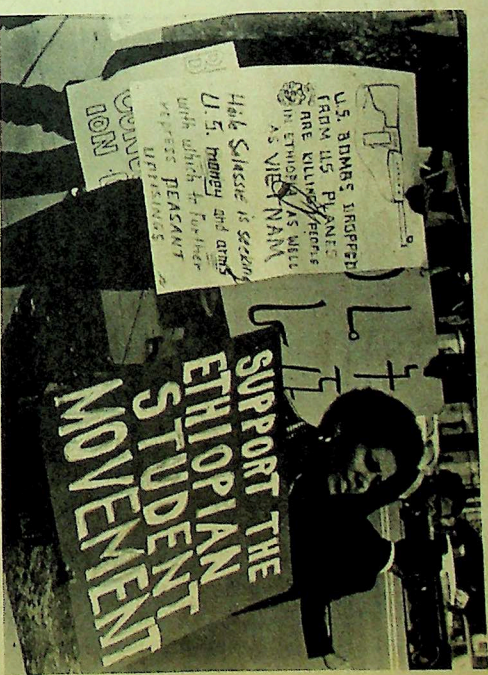 U.S. BOMBS DROPPED
FROM U.S PLANES
ARE KILLING PEOPLE
IN ETHIOPIA AS WELL
AS VIETNAM
Haile Selassie is seeking
U.S. money and arms
with which to further
repress PEASANT
UPRISINGS
ION
SUPPORT THE
ETHIOPIAN
STUDENT
MOVEMENT